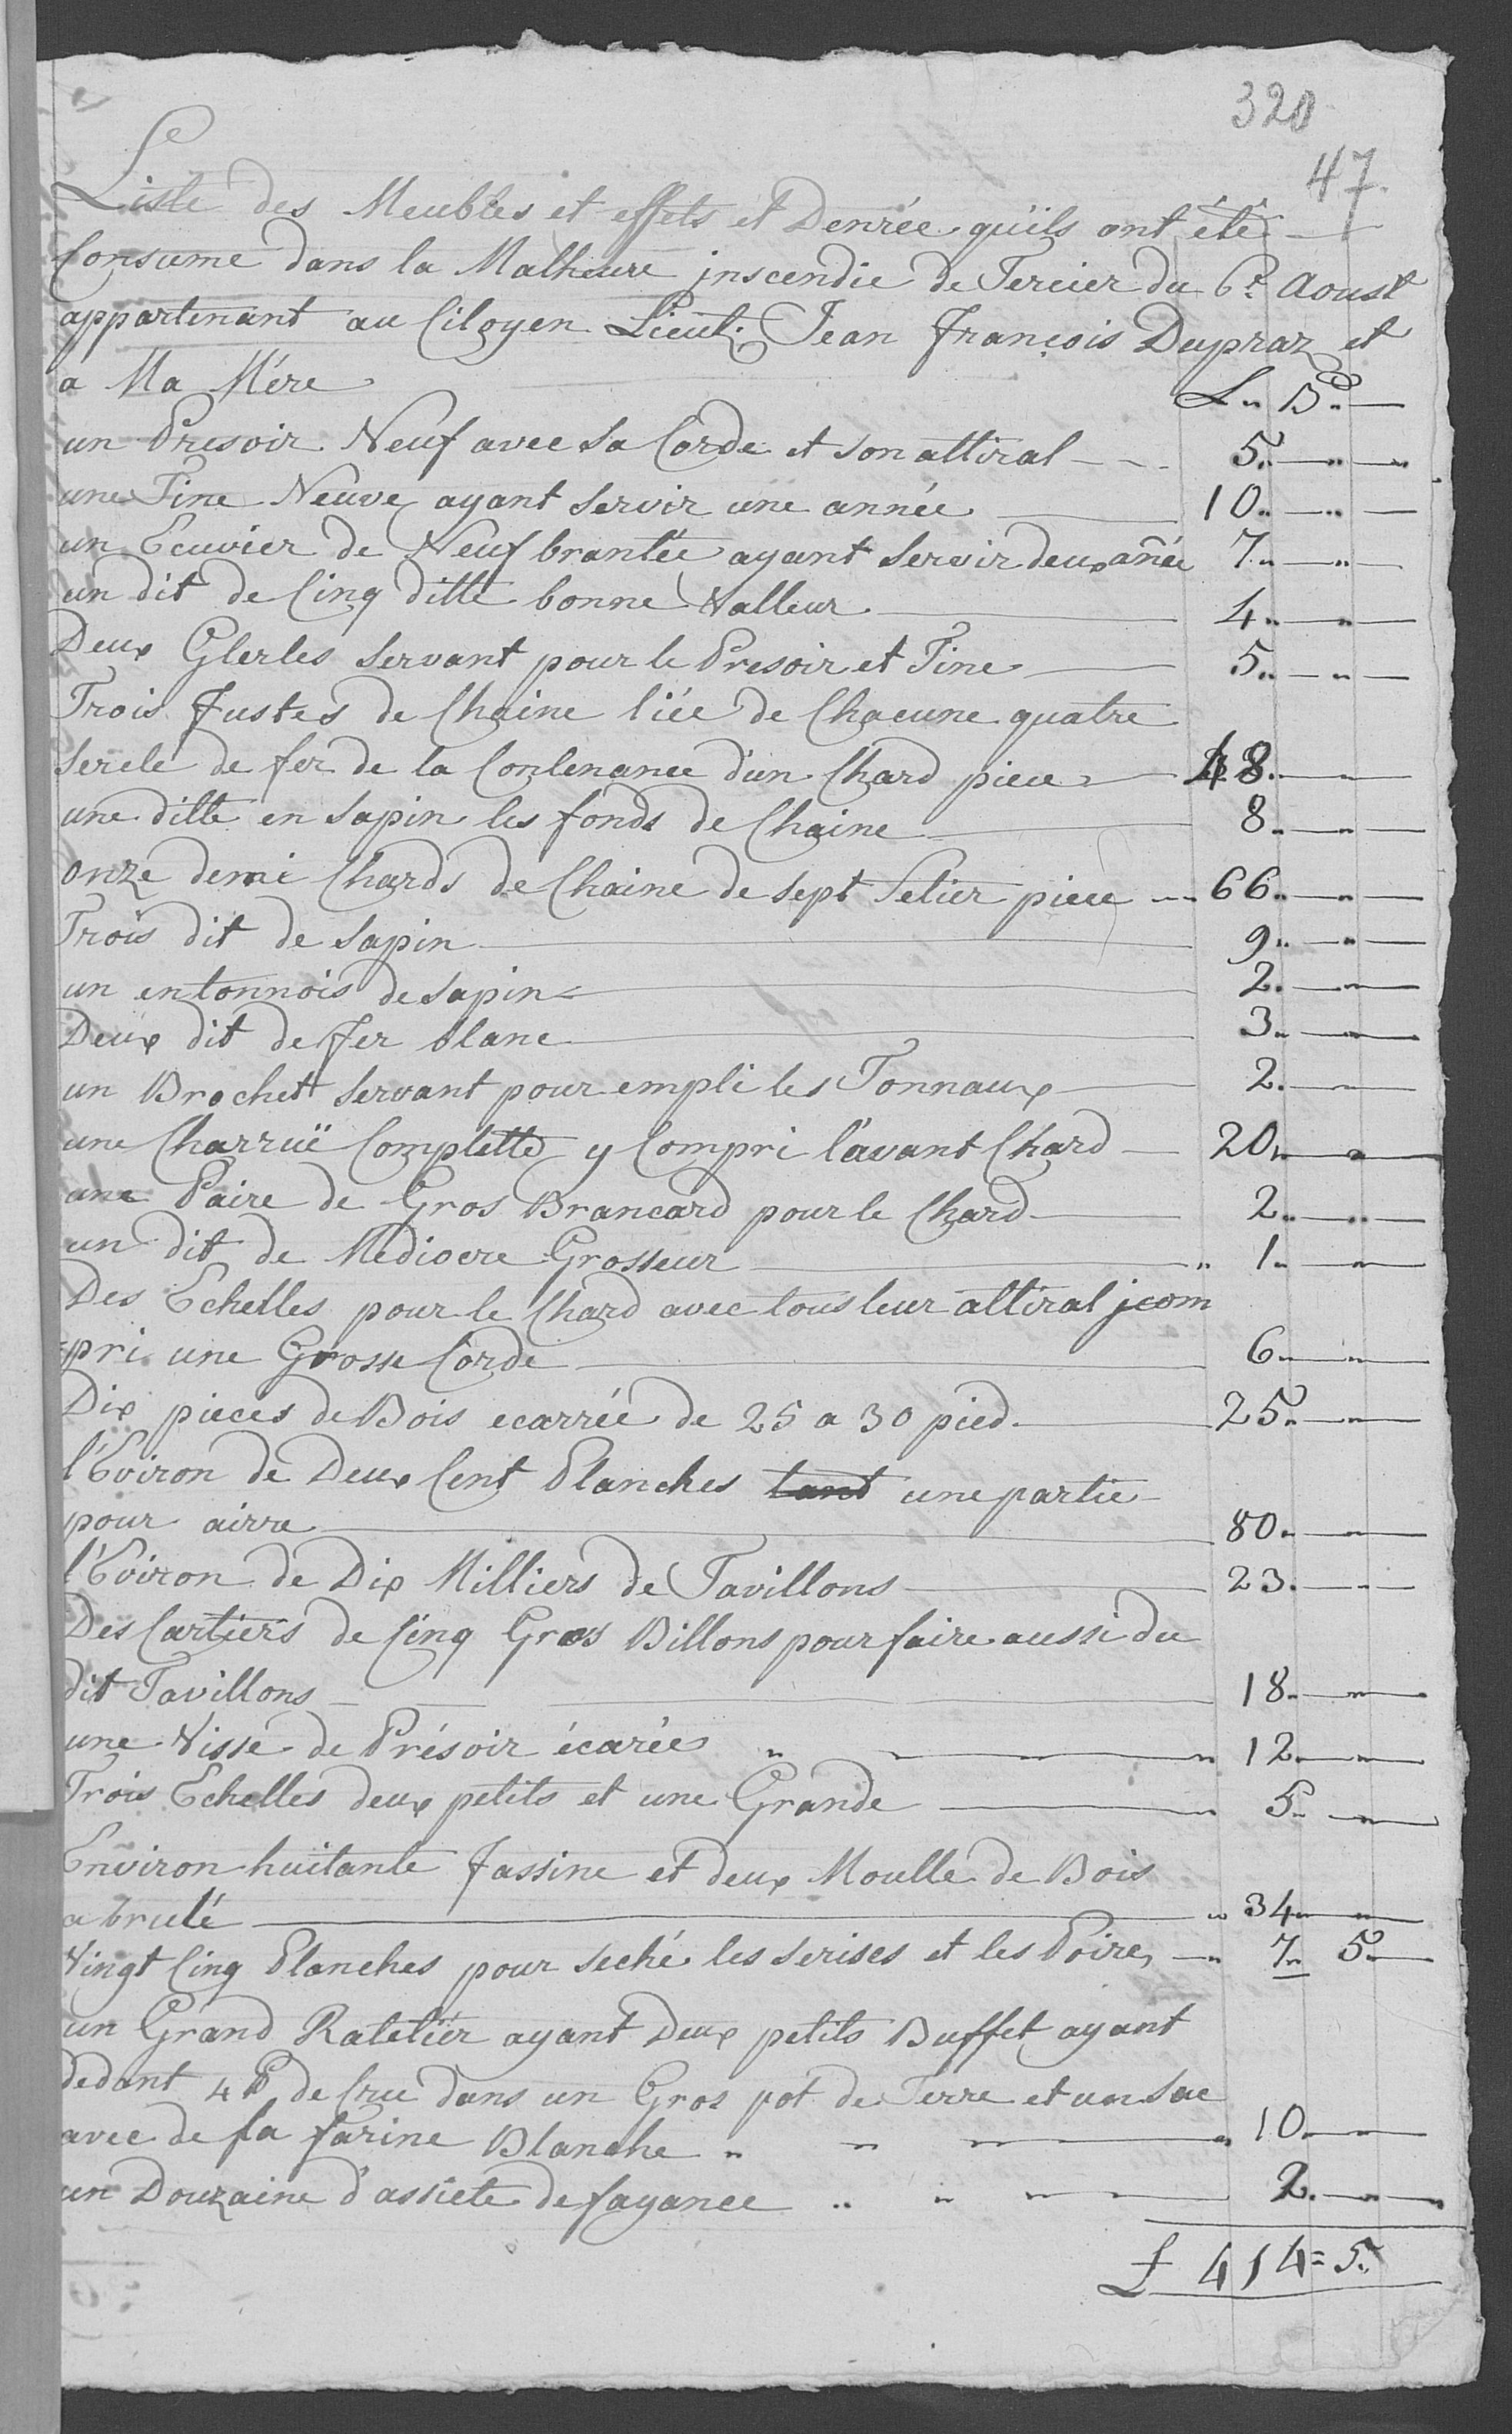 320
47.
Liste des Meubles et effets et Denrée qu'ils ont été
Consume dans la Malheure jnscendie de Tercier du 6e Aoust
appartenant au Citoyen Lieut. Jean François Dupraz et
a Ma Mére
L" B"
un Presoir Neuf avec sa Corde et son attiral 5"
une Tine Neuve ayant servir une année 10"
un Ecuvier de Neuf brantée ayant servir deux añée 7"
un dit de Cinq ditte bonne Valleur 4"
Deux Glerles servant pour le Presoir et Tine 5"
Trois Fustes de Chaine liée de Chacune quatre
sercle de fer de la Contenance d'un Chard piece 48"
une ditte en sapin les fonds de Chaine 8"
onze demi Chards de Chaine de sept Setier piece 66"
Trois dit de sapin 9"
un entonnois de sapin 2"
Deux dit de fer blanc 3"
un Brochet servant pour empli les Tonnaux 2"
une Charruë Complette y Compri l'avant Chard 20"
une Paire de Gros Brancard pour le Chard 2"
un dit de Mediocre Grosseur 1"
Des Echelles pour le Chard avec tous leur attiral jcom
=pri une Grosse Corde 6"
Dix pieces de Bois ecarrée de 25 a 30 pied 25"
l'Eviron de Deux Cent Planches tant une partie
pour airra 80"
l'Eviron de Dix Milliers de Tavillons 23"
Des Cartiers de Cinq Gros Billons pour faire aussi du
dit Tavillons 18"
une Visse de Présoir écarée 12"
Trois Echelles deux petits et une Grande 5"
Environ huitante fassine et deux Moulle de Bois
a brulé 34"
Vingt Cinq Planches pour seché les serises et les Poires 7" 5"
un Grand Ratelier ayant Deux petits Buffet ayant
dedant 4 de Cru dans un Gros pot de Terre et un sac
avec de la farine Blanche 10"
un Douzaine d'assiete de fayance 2"
£ 414=5"